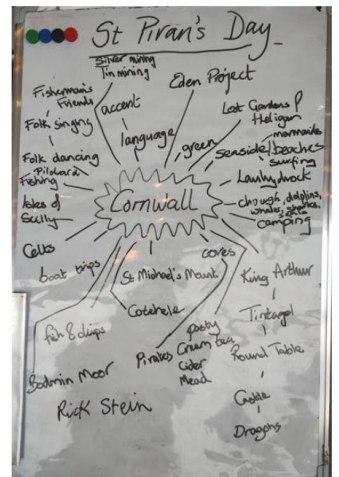 St Piran's Day
Silver mining
Tin mining
Eden Project
Fisherman's
Friends
accent
Lost Gardens of
Heligan
Folk singing
language
green
mermaids
seaside/beaches
surfing
Folk dancing
Pilchard
Fishing
Lanhydrock
Isles of
Scilly
Cornwall
chough, dolphins,
whales, sharks,
camping
Celts
boat trips
St Michael's Mount
coves
King Arthur
Cotehele
Tintagel
Fish & chips
Pirates
pasty
Cream tea
Cider
Mead
Round Table
Bodmin Moor
Rick Stein
Castle
Dragons